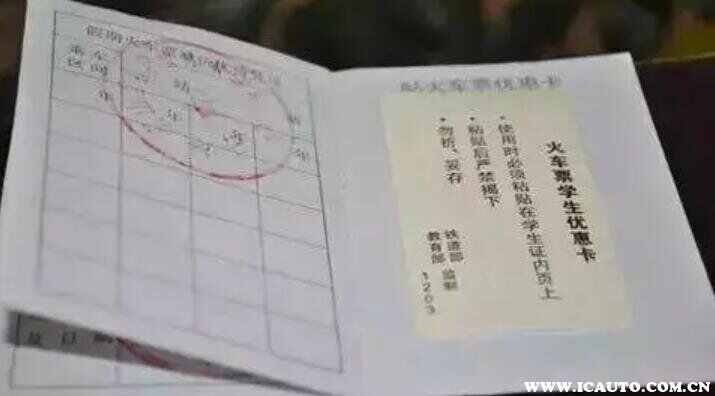 乘车
区间
站
年
年
年
粘火车票优惠卡
火车票学生优惠卡
• 使用时必须粘贴在学生证内页上
• 粘贴后严禁揭下
• 勿折、妥存
铁道部
教育部
监制
1203
WWW.ICAUTO.COM.CN